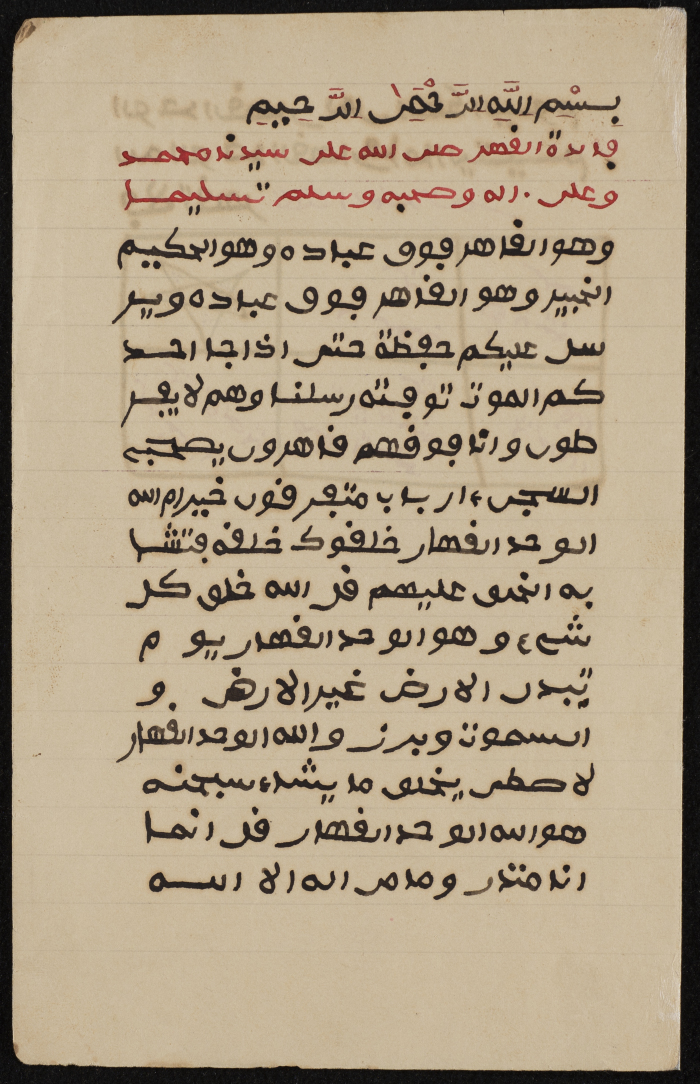 بِسْمِ اللَّهِ الرَّحْمَٰنِ الرَّحِيمِ
فايدة القهر صلى الله على سيدنا محمد
وعلى اله وصحبه وسلم تسليما
وهو القاهر فوق عباده وهو الحكيم
الخبير وهو القاهر فوق عباده وير
سل عليكم حفظة حتى اذا جا احد
كم الموت توفته رسلنا وهم لا يفر
طون وانا فوقهم قاهرون يصحبي
السجن ءارباب متفرقون خير ام الله
الوحد القهار خلقوا ك خلقه فتشا
به الخلق عليهم قل الله خلق كل
شيء وهو الوحد القهار يوم
تبدل الارض غير الارض و
السموت وبرزوا لله الوحد القهار
لاصطفى يخلق ما يشاء سبحنه
هو الله الوحد القهار قل انما
انا منذر وما من اله الا الله